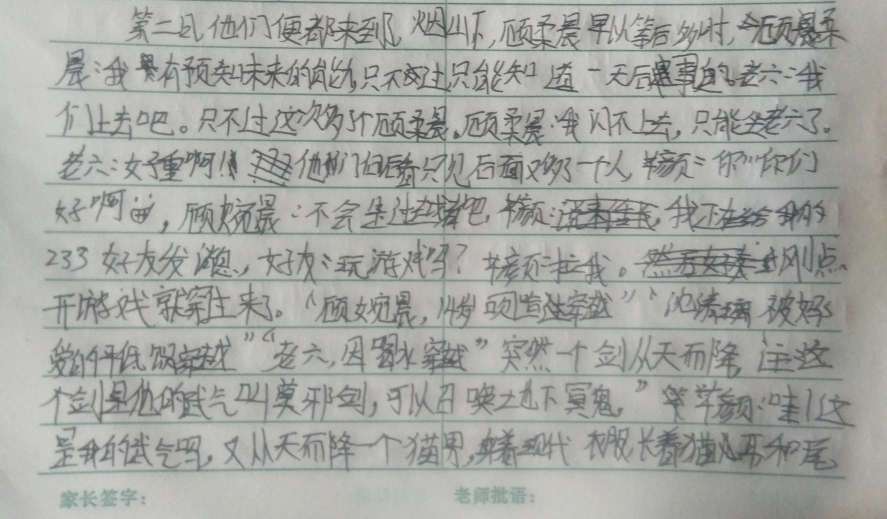 第二日,他们便都来到,烟山下,顾柔晨早以等后多时,顾柔
晨:我有预知味来的能力,只不过只能知道一天后事的。老六:我
们上去吧。只不过这次多了个顾柔晨。顾柔晨:我闪不上去,只能坐老六了。
老六:好重啊!!他们后只见后面又多了一个人,颜:你"你们
好啊",顾婉晨:不会是过越者吧,颜:我还在给我的
233好友发消息,好友:玩游戏吗?颜:拉我。刚点
开游戏就穿上来了。"顾婉晨,14岁穿越""被好
爱的穿越""老六,因喝水穿越"突然一个剑从天而降,注:这
个剑是他的武气叫莫邪剑,可以召唤土也下冥鬼。"颜:哇!这
是我的武气吗,又从天而降一个猫男,穿着现代衣服长着猫耳和尾
家长签字: 老师批语: